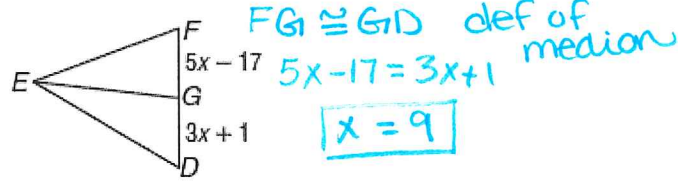 F
5x – 17
E
G
3x + 1
D
FG ≅ GD def of
median
5x-17 = 3x+1
x = 9